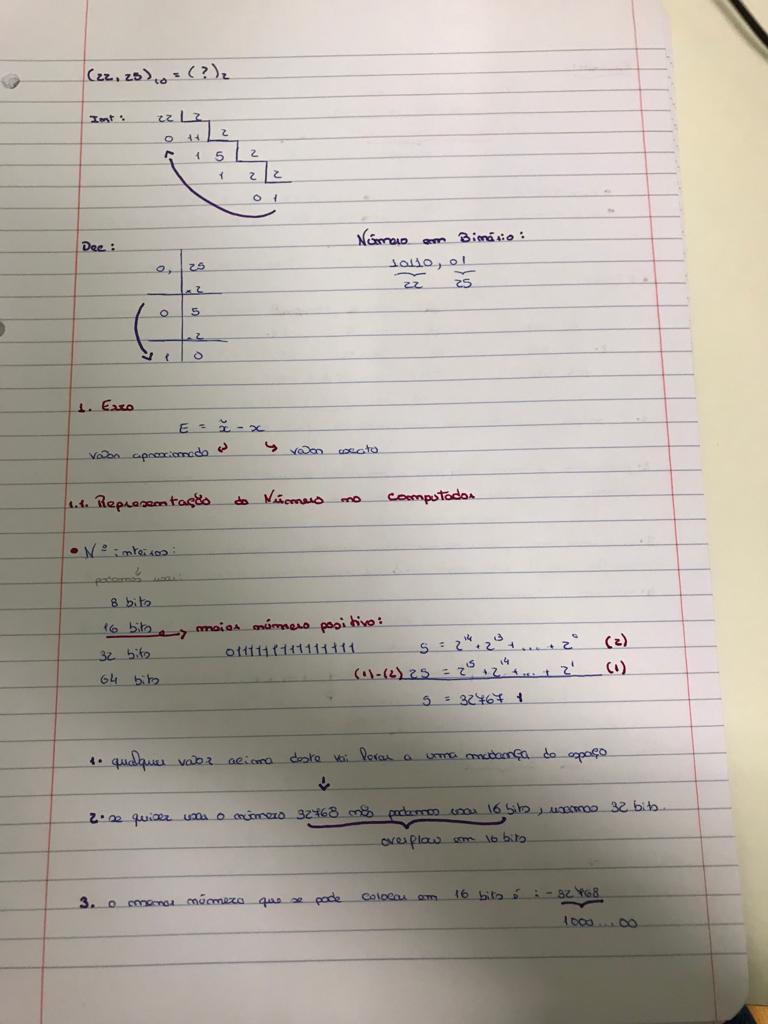 (22,25)₁₀ = (?)₂
Int: 22 | 2
0 11 | 2
1 5 | 2
1 2 | 2
0 1
Dec:
0, | 25
×2
0 | 5
×2
1 | 0
Número em Binário:
10110, 01
22 25
1. Erro
E = x̃ - x
valor aproximado ↲ ↳ valor exato
1.1. Representação do Número no computador
• Nº inteiros:
↓
podemos usar:
8 bits
16 bits → maior número positivo:
32 bits 0111111111111111 S = 2¹⁴ + 2¹³ + ... + 2⁰ (2)
64 bits (1)-(2) 2S = 2¹⁵ + 2¹⁴ + ... + 2¹ (1)
S = 32767
1. qualquer valor acima deste vai levar a uma mudança do espaço
↓
2. se quiser usar o número 32768 não podemos usar 16 bits, usamos 32 bits.
overflow em 16 bits
3. o menor número que se pode colocar em 16 bits é : - 32768
1000...00